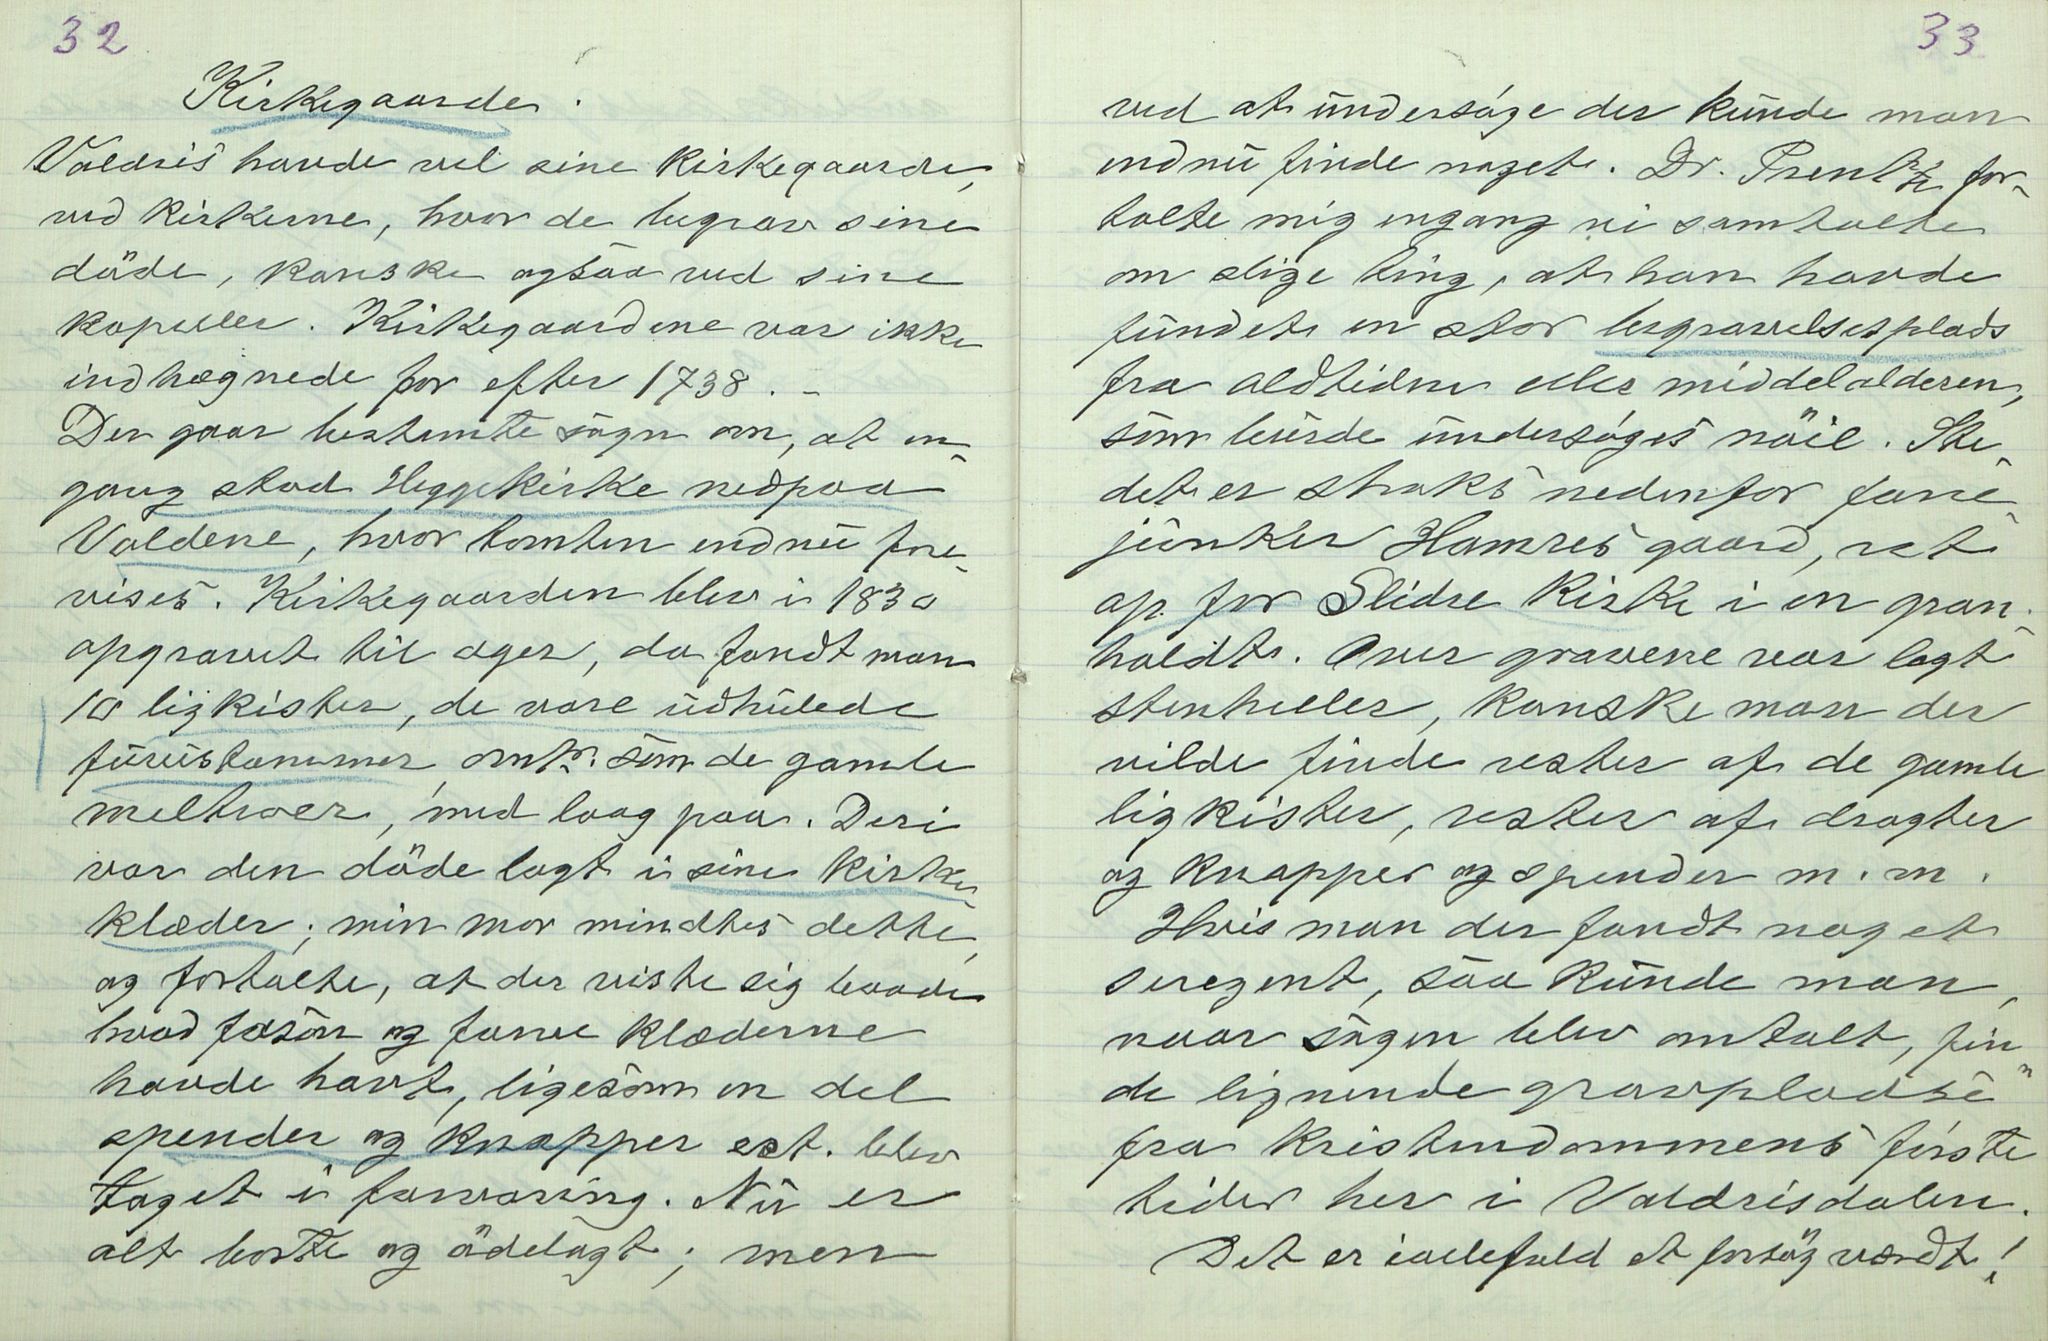 32
Kirkegaarde.
Valdris havde vel sine kirkegaarde,
ved kirkerne, hvor de begrov sine
döde, kanske ogsaa ved sine
kapeller. Kirkegaardene var ikke
indhægnede för efter 1738. -
Der gaar bestemte sagn om, at en-
gang stod Heggekirke nedpaa
Voldene, hvor tomten endnu fore-
vises. Kirkegaarden blev i 1830
opgravet til ager, da fandt man
10 ligkister, de vare udhulede
furustammer omtr. som de gamle
meltroer, med laag paa. Deri
var den döde lagt i sine kirke
klæder; min mor mindtes dette,
og fortalte, at der viste sig baade
hvad fason og farve klæderne
havde havt, ligesom en del
spender og knapper ect. blev
taget i forvaring. Nu er
alt borte og ödelagt; men
33
ved at undersöge der kunde man
endnu finde noget. Dr. Prentz for-
talte mig engang vi samtalte
om slige ting, at han havde
fundet en stor begravelsesplads
fra oldtiden eller middelalderen,
som burde undersöges nöie. Ste-
det er straks nedenfor fane-
junker Hamres gaard, ret
op for Slidre kirke i en gran-
holdt. Over gravene var lagt
stenheller, kanske man der
vilde finde rester af de gamle
ligkister, rester af dragter
og knapper og spender m.m.
Hvis man der fandt noget
sereg ent, saa kunde man,
naar sagen blev omtalt, fin-
de lignende gravpladse
fra kristendommens förste
tider her i Valdrisdalen.
Det er iallefald et forsög værdt!